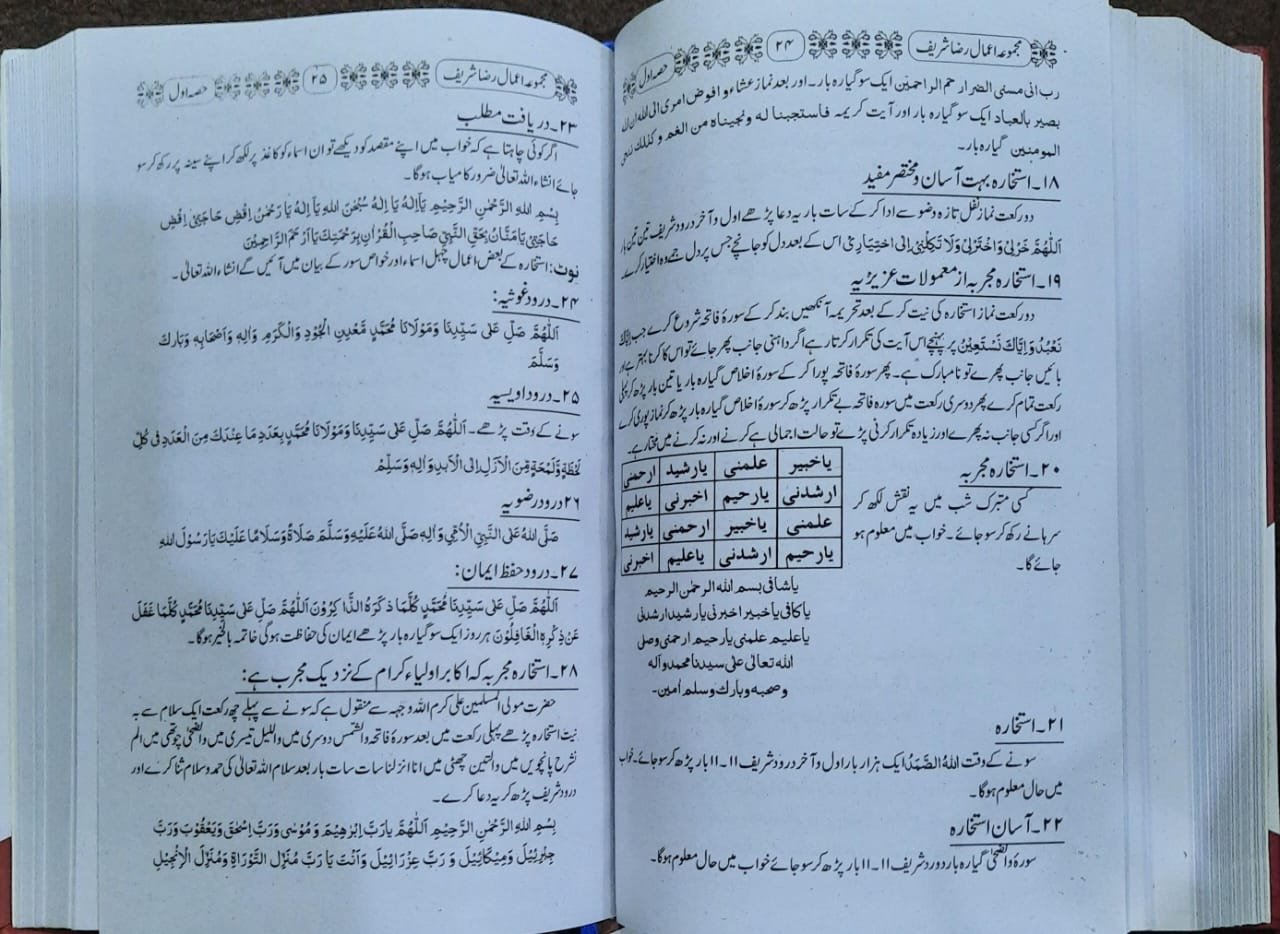 مجموعہ اعمال رضا شریف ۲۴ حصہ اول
رب انی مسنی الضر ارحم الراحمین ایک سو گیارہ بار۔ اور بعد نماز عشاء و افوض امری الی اللہ ان اللہ
بصیر بالعباد ایک سو گیارہ بار اور آیت کریمہ فاستجبنا لہ و نجیناہ من الغم و کذلک ننجی
المومنین گیارہ بار۔
۱۸۔ استخارہ بہت آسان و مختصر مفید
دو رکعت نماز نفل تازہ وضو سے ادا کر کے سات بار یہ دعا پڑھے اول و آخر درود شریف تین تین بار
اَللّٰهُمَّ خَرْلِیْ وَاخْتَرْلِیْ وَلَا تَكِلْنِیْ اِلی اخْتِیَارِیْ اس کے بعد دل کو جانچے جس پر دل جمے وہ اختیار کرے۔
۱۹۔ استخارہ مجربہ از معمولات عزیزیہ
دو رکعت نماز استخارہ کی نیت کر کے بعد تحریمہ آنکھیں بند کر کے سورۂ فاتحہ شروع کرے جب اِیَّاكَ
نَعْبُدُ وَاِیَّاكَ نَسْتَعِیْنُ پر پہنچے اس آیت کی تکرار کرتا رہے اگر داہنی جانب پھر جائے تو اس کا کرنا بہتر ہے اور
بائیں جانب پھرے تو نا مبارک ہے۔ پھر سورۂ فاتحہ پورا کر کے سورۂ اخلاص گیارہ بار یا تین بار پڑھ کر پہلی
رکعت تمام کرے پھر دوسری رکعت میں سورہ فاتحہ بے تکرار پڑھ کر سورۂ اخلاص گیارہ بار پڑھ کر نماز پوری کرے
اور اگر کسی جانب نہ پھرے اور زیادہ تکرار کرنی پڑے تو حالت اجمالی ہے کرنے اور نہ کرنے میں مختار ہے۔
۲۰۔ استخارہ مجربہ
کسی متبرک شب میں یہ نقش لکھ کر
سرہانے رکھ کر سو جائے۔ خواب میں معلوم ہو
جائے گا۔
یاخبیر علمنی یارشید ارحمنی
ارشدنی یارحیم اخبرنی یاعلیم
علمنی یاخبیر ارحمنی یارشید
یارحیم ارشدنی یاعلیم اخبرنی
یاشافی بسم اللہ الرحمن الرحیم
یاکافی یاخبیر اخبرنی یارشید ارشدنی
یاعلیم علمنی یارحیم ارحمنی وصلی
اللہ تعالی علی سیدنا محمد و آلہ
و صحبہ و بارك و سلم اٰمین۔
۲۱۔ استخارہ
سونے کے وقت اَللّٰهُ الصَّمَدُ ایک ہزار بار اول و آخر درود شریف ۱۱۔۱۱ بار پڑھ کر سو جائے۔ خواب
میں حال معلوم ہوگا۔
۲۲۔ آسان استخارہ
سورۂ والضحیٰ گیارہ بار درود شریف ۱۱۔۱۱ بار پڑھ کر سو جائے خواب میں حال معلوم ہوگا۔
مجموعہ اعمال رضا شریف ۲۵ حصہ اول
۲۳۔ دریافت مطلب
اگر کوئی چاہتا ہے کہ خواب میں اپنے مقصد کو دیکھے تو ان اسماء کو کاغذ پر لکھ کر اپنے سینہ پر رکھ کر سو
جائے انشاء اللہ تعالیٰ ضرور کامیاب ہوگا۔
بِسْمِ اللهِ الرَّحْمٰنِ الرَّحِیْمِ یَااِلٰهُ یَا اِلٰهُ سُبْحٰنَ اللهِ یَا اِلٰهُ یَا رَحْمٰنُ اِقْضِ حَاجَتِیْ اِقْضِ
حَاجَتِیْ یَا مَنَّانُ بِحَقِّ النَّبِیِّ صَاحِبِ الْقُرْاٰنِ بِرَحْمَتِكَ یَا اَرْحَمَ الرَّاحِمِیْنَ
نوٹ: استخارہ کے بعض اعمال چہل اسماء اور خواص سور کے بیان میں آئیں گے انشاء اللہ تعالیٰ۔
۲۴۔ درود غوثیہ:
اَللّٰهُمَّ صَلِّ عَلٰی سَیِّدِنَا وَمَوْلَانَا مُحَمَّدٍ مَّعْدِنِ الْجُوْدِ وَالْكَرَمِ وَاٰلِهٖ وَاَصْحَابِهٖ وَبَارِكْ
وَسَلَّمَ
۲۵۔ درود اویسیہ
سونے کے وقت پڑھے۔ اَللّٰهُمَّ صَلِّ عَلٰی سَیِّدِنَا وَمَوْلَانَا مُحَمَّدٍ بِعَدَدِ مَا عِنْدَكَ مِنَ الْعَدَدِ فِیْ كُلِّ
لَحْظَةٍ وَّلَمْحَةٍ مِّنَ الْاَزَلِ اِلَی الْاَبَدِ وَاٰلِهٖ وَسَلِّمْ
۲۶ درود رضویہ
صَلَّی اللهُ عَلَی النَّبِیِّ الْاُمِّیِّ وَاٰلِهٖ صَلَّی اللهُ عَلَیْهِ وَسَلَّمَ صَلَاةً وَسَلَامًا عَلَیْكَ یَا رَسُوْلَ اللهِ
۲۷۔ درود حفظ ایمان:
اَللّٰهُمَّ صَلِّ عَلٰی سَیِّدِنَا مُحَمَّدٍ كُلَّمَا ذَكَرَهُ الذَّاكِرُوْنَ اَللّٰهُمَّ صَلِّ عَلٰی سَیِّدِنَا مُحَمَّدٍ كُلَّمَا غَفَلَ
عَنْ ذِكْرِهِ الْغَافِلُوْنَ ہر روز ایک سو گیارہ بار پڑھے ایمان کی حفاظت ہوگی خاتمہ بالخیر ہوگا۔
۲۸۔ استخارہ مجربہ کہ اکابر اولیاء کرام کے نزدیک مجرب ہے:
حضرت مولی المسلمین علی کرم اللہ وجہہ سے منقول ہے کہ سونے سے پہلے چھ رکعت ایک سلام سے بہ
نیت استخارہ پڑھے پہلی رکعت میں بعد سورۂ فاتحہ والشمس دوسری میں واللیل تیسری میں والضحیٰ چوتھی میں الم
نشرح پانچویں میں والتین چھٹی میں انا انزلنا سات سات بار بعد سلام اللہ تعالیٰ کی حمد و سلام ثنا کرے اور
درود شریف پڑھ کر یہ دعا کرے۔
بِسْمِ اللهِ الرَّحْمٰنِ الرَّحِیْمِ اَللّٰهُمَّ یَارَبَّ اِبْرٰهِیْمَ وَ مُوْسٰی وَرَبَّ اِسْحٰقَ وَیَعْقُوْبَ وَرَبَّ
جِبْرَئِیْلَ وَمِیْكَائِیْلَ وَ رَبَّ عِزْرَائِیْلَ وَاَنْتَ یَا رَبَّ مُنَزِّلَ التَّوْرَاةِ وَمُنَزِّلَ الْاِنْجِیْلِ